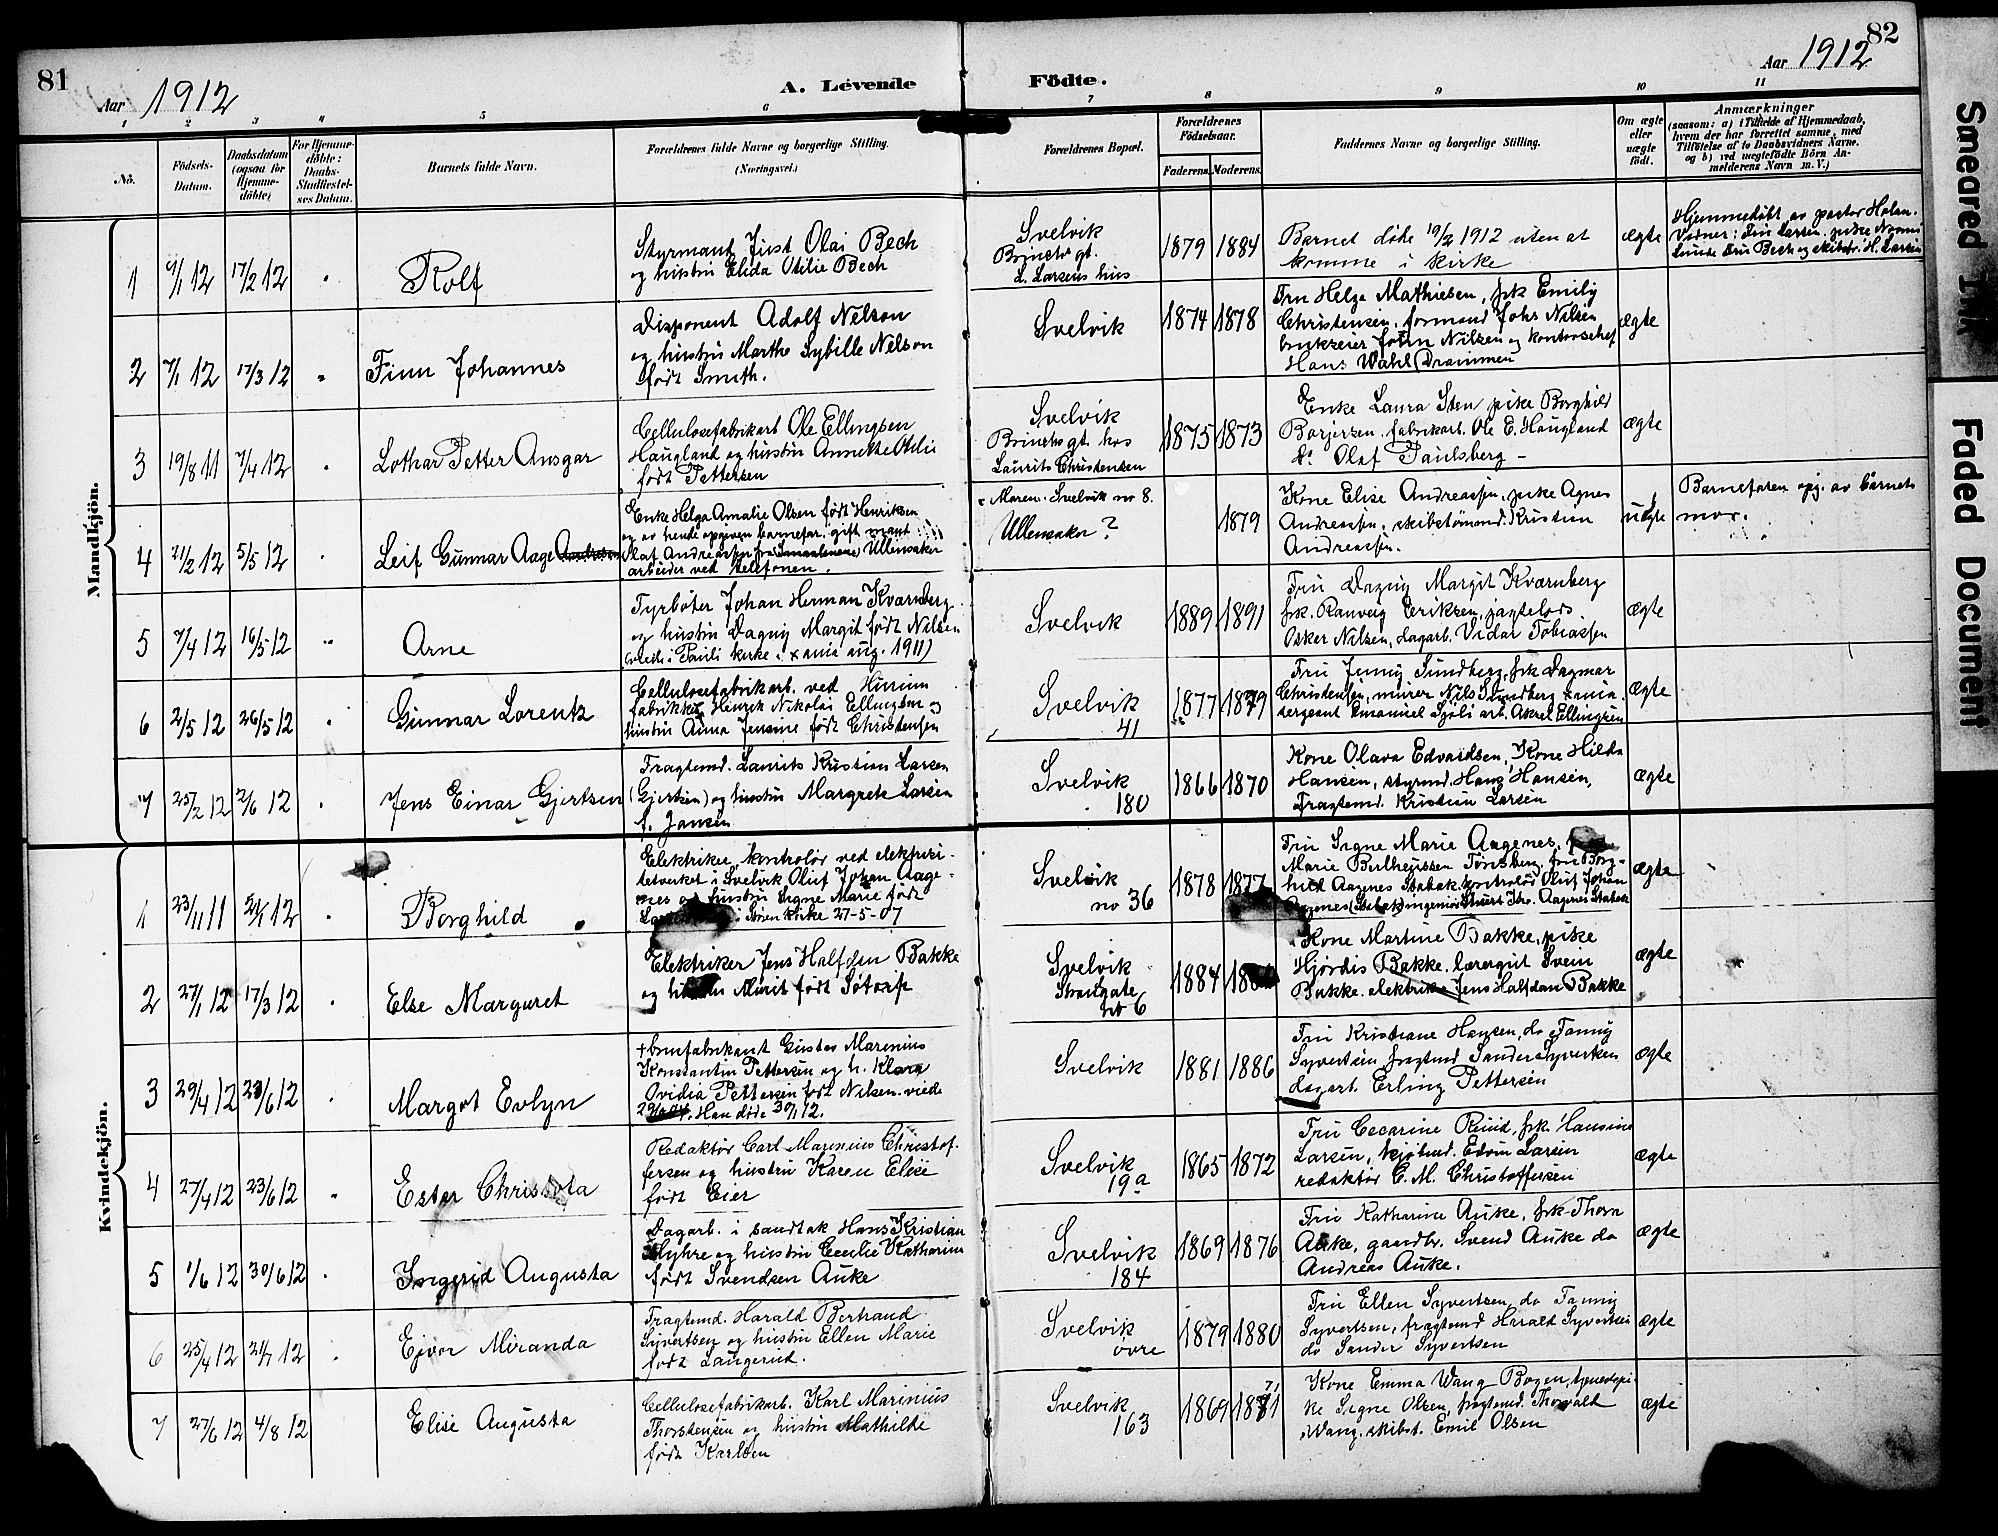 81
Aar 1912
A. Levende Födte.
Aar 1912
82
1 2 3 4 5 6 7 8 9 10 11
No.
Födsels-Datum.
Daabsdatum (ogsaa for Hjemmedöbte)
For Hjemmedöbte: Daabs-Stadfæstelses Datum.
Barnets fulde Navn.
Forældrenes fulde Navne og borgerlige Stilling. (Næringsvei.)
Forældrenes Bopæl.
Forældrenes Födselsaar.
Faderens. Moderens.
Faddernes Navne og borgerlige Stilling.
Om ægte eller uægte födt.
Anmærkninger
(saasom: a) i Tilfælde af Hjemmedaab,
hvem der har forrettet samme, med
Tilföielse af to Daabsvidners Navne.
og b) ved uægtefödte Börn Anmelderens Navn m. V.)
Mandkjön.
1 9/1 12 17/2 12 " Rolf
Styrmand Just Olai Bech
og hustru Elida Otilie Bech
Svelvik
L. Larsens hus
1879 1884
Barnet døde 19/2 1912 uten at
komme i kirke
ægte
Hjemmedøbt av pastor Holm.
2 7/1 12 17/3 12 " Finn Johannes
Disponent Adolf Nelson
og hustru Marthe Sybille Nelson
født Smith.
Svelvik
1874 1878
Fru Helga Mathiesen, frk Emily
Christensen, formand Johs Nilsen
brukseier John Nilsen og kontorchef
Hans Wahl (Drammen
ægte
3 19/8 11 7/4 12 " Lothar Petter Ansgar
Cellulosefabrikarb Ole Ellingsen
Haugland og hustru Annette Otilie
født Pettersen
Svelvik
hos
Laurits Christensen
1875 1873
Enke Laura Sten pike Borghild
Borjersen. fabrikarb. Ole E. Haugland
Do Olaf Paulsberg -
ægte
4 21/2 12 5/5 12 " Leif Gunnar Aage
Enke Helga Amalie Olsen født Henriksen
og av hende opgiven barnefar. gift mand
Olaf Andreassen Ullensaker
arbeider ved telefonen.
Moren. Svelvik no 8.
Ullensaker?
1879
Kone Elise Andreassen, pike Agnes
Andreassen, skibstømmd. Kristian
Andreassen.
uægte
Barnefaren opg. av barnets
mor.
5 7/4 12 16/5 12 " Arne
Fyrbøter Johan Herman Kvarnberg
og hustru Dagny Margit født Nilsen
(viede i Pauli kirke i Xania aug. 1911)
Svelvik
1889 1891
Fru Dagny Margit Kvarnberg
frk. Ranveig Eriksen, jagtelods
Osker Nilsen, dagarb. Vidar Tobiassen
ægte
6 2/5 12 26/5 12 " Gunnar Lorentz
Cellulosefabrikarb. ved Hurum
fabrikker Henrik Nikolai Ellingsen og
hustru Anna Jensine født Christensen
Svelvik
41
1877 1879
Fru Jenny Sundberg, frk Dagmar
Christensen, murer Nils Sundberg Xania.
sergeant Emanuel Sjøli arb. Aksel Ellingsen
ægte
7 25/2 12 2/6 12 " Jens Einar Gjertsen
Fragtemd. Laurits Kristian Larsen
(Gjertsen) og hustru Margrete Larsen
f. Jansen
Svelvik
180
1866 1870
Kone Olava Edvardsen, Kone Hilda
Hansen, styrmd. Hans Hansen,
Fragtemd. Kristian Larsen
ægte
Kvindekjön.
1 23/11 11 21/1 12 " Borghild
Elektriker, kontrolør ved elektrici-
tetverket i Svelvik Oluf Johan Aage-
nes og hustru Signe Marie født
kirke 27-5-07
Svelvik
no 36
1878 1877
Fru Signe Marie Aagenes,
Marie Tønsberg, fru Borg-
hild Aagenes Stabæk, kontrolør Oluf Johan
Aagenes (Stabæk) ingeniør Aagenes Stabæk
ægte
2 27/1 12 17/3 12 " Else Margaret
Elektriker Jens Halfdan Bakke
og hustru Marit født Søtorp
Svelvik
Strandgate
no 6
1884
Kone Martine Bakke, pike
Hjørdis Bakke. lærergut Svein
Bakke. elektriker Jens Halfdan Bakke
ægte
3 29/4 12 23/6 12 " Margot Evlyn
Gustav Marinius
Konstantin Pettersen og h. Klara
Ovidia Pettersen født Nilsen. viede
Han døde 30/1 12.
Svelvik
1881 1886
Fru Kristiane Hansen, do Fanny
Syvertsen fragtmd Sander Syvertsen
dagarb. Erling Pettersen
ægte
4 27/4 12 23/6 12 " Ester Christofa
Redaktør Carl Marinius Christof-
fersen og hustru Karen Elise
født Eier
Svelvik
19a
1865 1872
Fru Cecarine Ruud, frk. Hansine
Larsen, kjøbmd. Edvin Larsen
redaktør C. M. Christoffersen
ægte
5 1/6 12 30/6 12 " Ingerid Augusta
Dagarb. i sandtak Hans Kristian
Myhre og hustru Cecilie Katharine
født Svendsen Auke
Svelvik
184
1869 1876
Fru Katharine Auke, frk Thora
Auke, gaardbr. Svend Auke do
Andreas Auke.
ægte
6 25/4 12 21/7 12 " Ejvor Miranda
Fragtemd. Harald Bertrand
Syvertsen og hustru Ellen Marie
født Laugerud.
Svelvik
øvre
1879 1880
Fru Ellen Syvertsen do Fanny
Syvertsen, fragtemd Harald Syvertsen
do Sander Syvertsen
ægte
7 27/6 12 4/8 12 Elise Augusta
Cellulosefabrikarb. Karl Marinius
Thorstensen og hustru Mathilde
født Karlsen
Svelvik
163
1869 1871
Kone Emma Wang Bogen, tjenestepi-
ke Signe Olsen, fragtemd. Thorvald
Wang. skibst. Emil Olsen
ægte
Smeared Ink
Faded Document